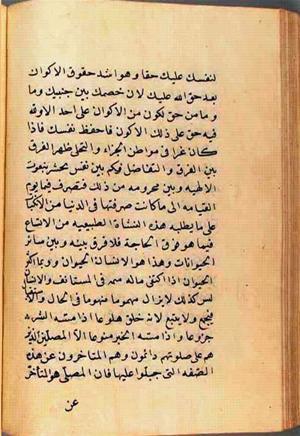 لنفسك عليك حقا وهو اشد حقوق الاكوان
بعد حق الله عليك لان خصمك بين جنبيك وما
وما من حق لكون من الاكوان على احد الا ولله
فيه حق على ذلك الاكون فاحفظ نفسك فاذا
كان غرا فى مواطن الجزاء والتحلى ظهر الفرق
بين الفرق والتفاضل فكم بين نفس
الالهيه وبين محرومه من ذلك فتصرف فيها يوم
القيامه الى ما كانت صرفتها فى الدنيا من
على ما يطلبه هذه النشاة الطبيعيه من الاتباع
فيما هو فوق الحاجة فلا فرق بينه وبين سائر
الحيوانات وهذا هو الانسان الحيوان
الحيوان اذا اكتفى ماله سهم فى المستانف والانسان
ليس كذلك لا يزال مهموما منهوما فى الحال
فيجمع ولا يشبع لانه خلق هلوعا اذا مسه الشر
جزوعا واذا مسه الخير منوعا الا المصلين الذين
هم على صلوتهم دائمون وهم المتاخرون عن هذه
الصفه التى جبلوا عليها فان المصلى هو المتاخر
عن